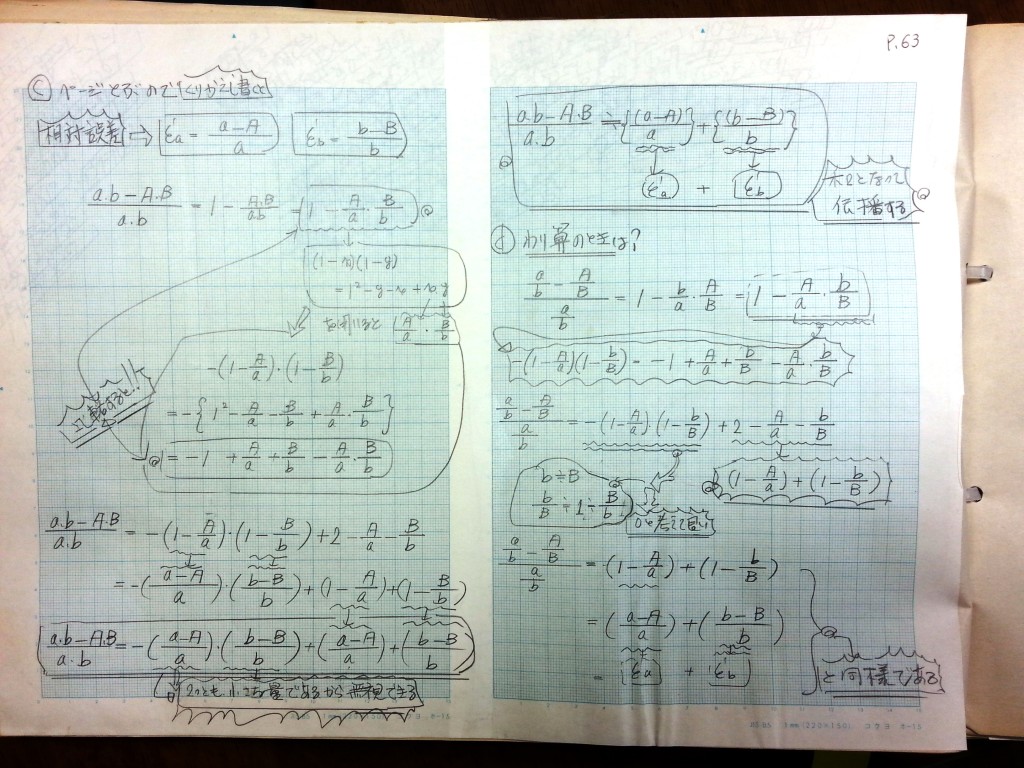 P.63
ⓒ ページとぶので くりかえし書くと
相対誤差 ⇒ ε'a = (a-A)/a  ε'b = (b-B)/b
(a.b-A.B)/(a.b) = 1 - (A.B)/(ab) = 1 - A/a · B/b
(1-x)(1-y)
= 1² -y -x + x.y
を用いると A/a · B/b
-(1-A/a)·(1-B/b)
= -{1² - A/a - B/b + A/a · B/b}
= -1 + A/a + B/b - A/a · B/b
(a.b-A.B)/(a.b) = -(1-A/a)·(1-B/b) + 2 - A/a - B/b
= -((a-A)/a)·((b-B)/b) + (1-A/a) + (1-B/b)
(a.b-A.B)/(a.b) = -((a-A)/a)·((b-B)/b) + ((a-A)/a) + ((b-B)/b)
2つとも小さな量であるから無視できる
(a.b-A.B)/(a.b) ≒ {(a-A)/a} + {(b-B)/b}
ε'a + ε'b
和となって
伝播する
ⓓ わり算のときは?
(a/b - A/B)/(a/b) = 1 - b/a · A/B = 1 - A/a · b/B
-(1-A/a)(1-b/B) = -1 + A/a + b/B - A/a · b/B
(a/b - A/B)/(a/b) = -(1-A/a)(1-b/B) + 2 - A/a - b/B
(1-A/a) + (1-b/B)
b≒B
b/B ≒ 1 ≒ B/b
0と考えて良い
(a/b - A/B)/(a/b) = (1-A/a) + (1-b/B)
= ((a-A)/a) + ((b-B)/b)
= ε'a + ε'b
と同様である
1mm(220×150) コクヨ ホ-15